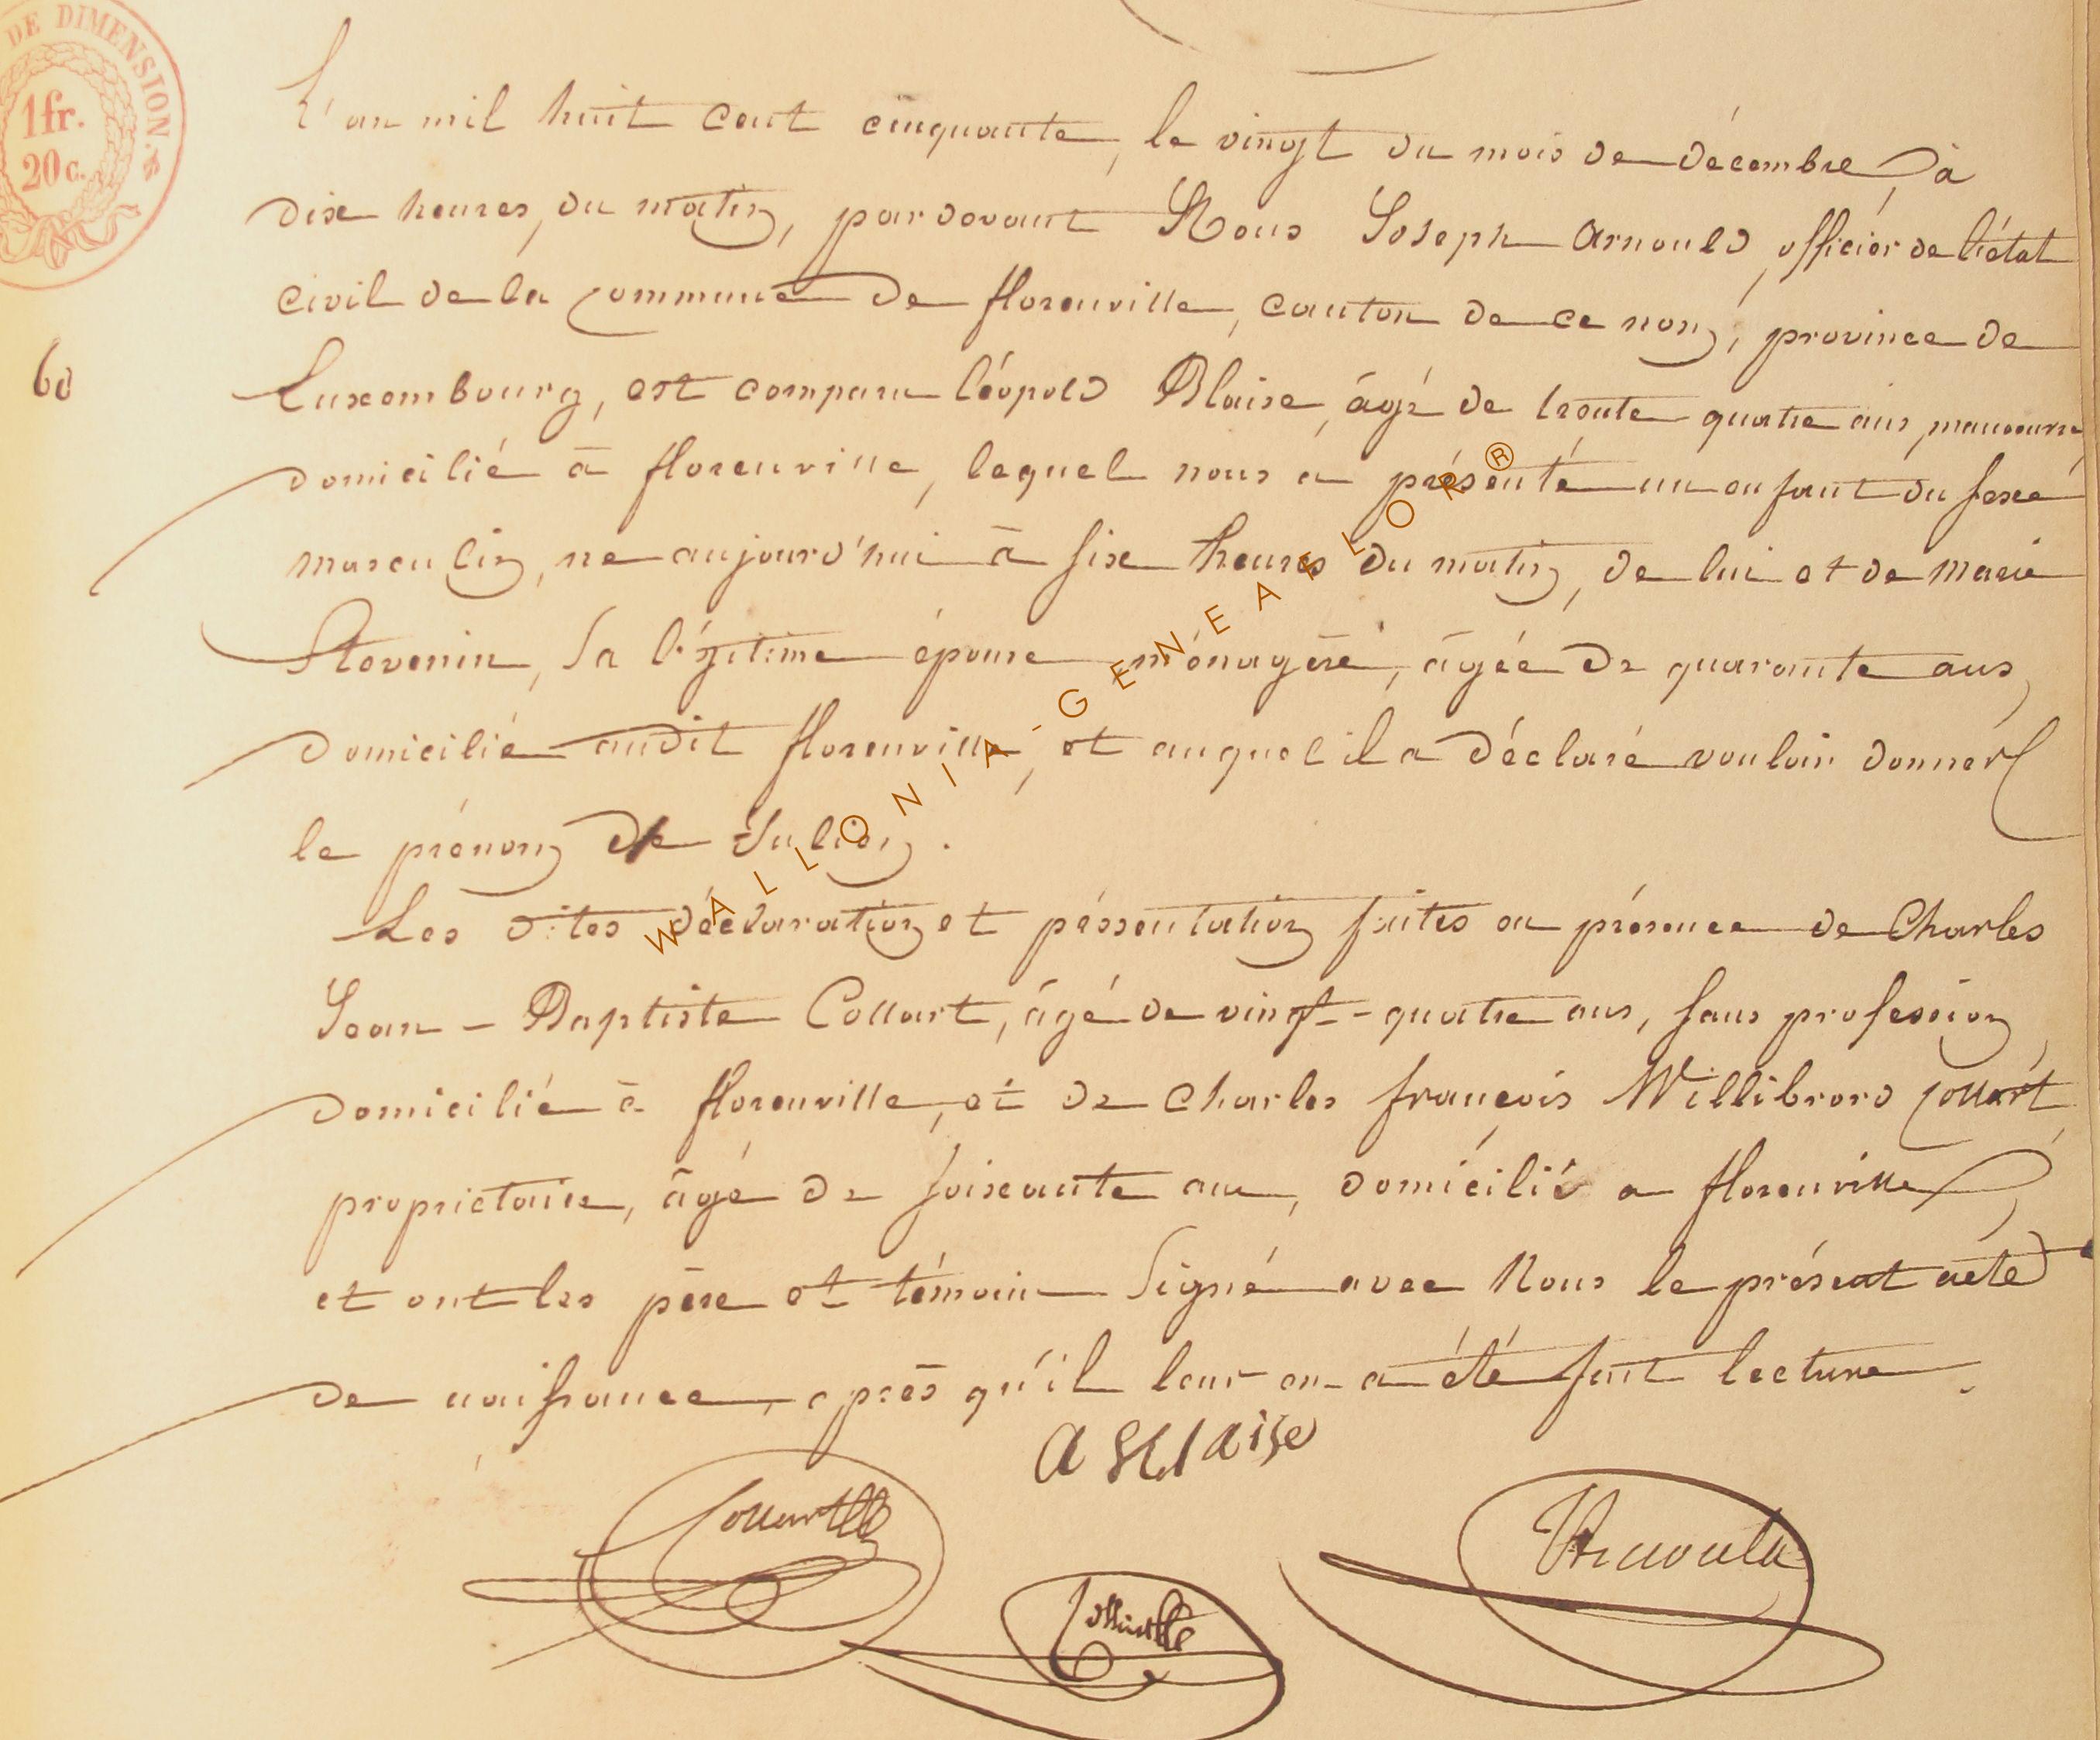 DE DIMENSION.
1fr.
20c.
L'an mil huit cent cinquante, le vingt du mois de décembre, à
dix heures, du matin, pardevant Nous Joseph Arnould, officier de l'état
civil de la commune de florenville, canton de ce nom, province de
60
Luxembourg, est comparu léopold Blaise, âgé de trente quatre ans, manoeuvre
domicilié à florenville, lequel nous a présenté un enfant du sexe
masculin, né aujourd'hui à six heures du matin, de lui et de marie
Stevenin, sa légitime épouse ménagère, âgée de quarante ans,
domicilié audit florenville, et auquel il a déclaré vouloir donner
le prénom de Julien.
Les dites déclaration et présentation faites en présence de Charles
Jean-Baptiste Collart, âgé de vingt-quatre ans, sans profession,
domicilié à florenville, et de Charles françois Willibrord Collart
proprietaire, âgé de soixante ans, domicilié a florenville,
et ont les père et témoin signé avec Nous le présent acte
de naissance, après qu'il leur en a été fait lecture.
Collart
Arnould
WALLONIA-GENEAFLOR®